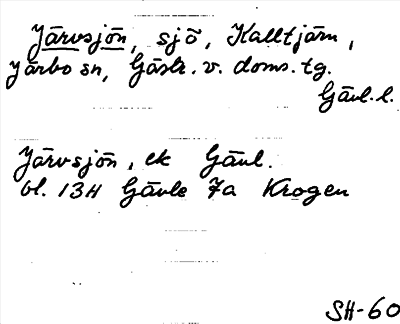 Järvsjön, sjö, Kalltjärn,
Järbo sn, Gästr. v. doms. tg.
Gävl. l.
Järvsjön, ek Gävl.
bl. 13H Gävle 7a Krogen
SH-60